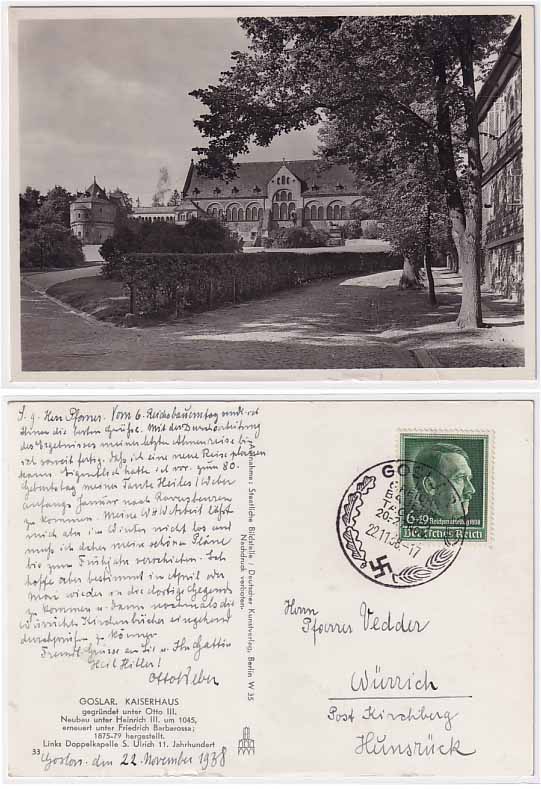 S. g. Herr Pfarrer. Vom 6. Reichsbauerntag sende ich
Ihnen die besten Grüße. Mit der Durcharbeitung
des Ergebnisses meiner letzten Ahnenreise bin
ich soweit fertig, daß ich eine neue Reise planen
kann. Eigentlich hatte ich vor, zum 80.
Geburtstag meiner Tante Heiles/Weber
anfangs Januar nach
zu kommen. Meine Arbeit läßt
mich aber im Winter nicht los und
muß ich daher meine schönen Pläne
bis zum Frühjahr verschieben. Ich
hoffe aber bestimmt im April oder
Mai wieder in die dortige Gegend
zu kommen u. dann nochmals die
Würricher Kirchenbücher eingehend
durchprüfen z. können.
Freundl. Grüsse an Sie u. Ihre Gattin
Heil Hitler!
Otto Weber
GOSLAR. KAISERHAUS
gegründet unter Otto III.
Neubau unter Heinrich III. um 1045,
erneuert unter Friedrich Barbarossa;
1875-79 hergestellt.
Links Doppelkapelle S. Ulrich 11. Jahrhundert
33
Goslar, den 22. November 1938
Aufnahme: Staatliche Bildstelle · Deutscher Kunstverlag, Berlin W 35
Nachdruck verboten.
GOSLAR
22.11.38-17
6+19 Reichsparteitag 1938
Deutsches Reich
Herrn
Pfarrer Vedder
Würrich
Post Kirchberg
Hunsrück